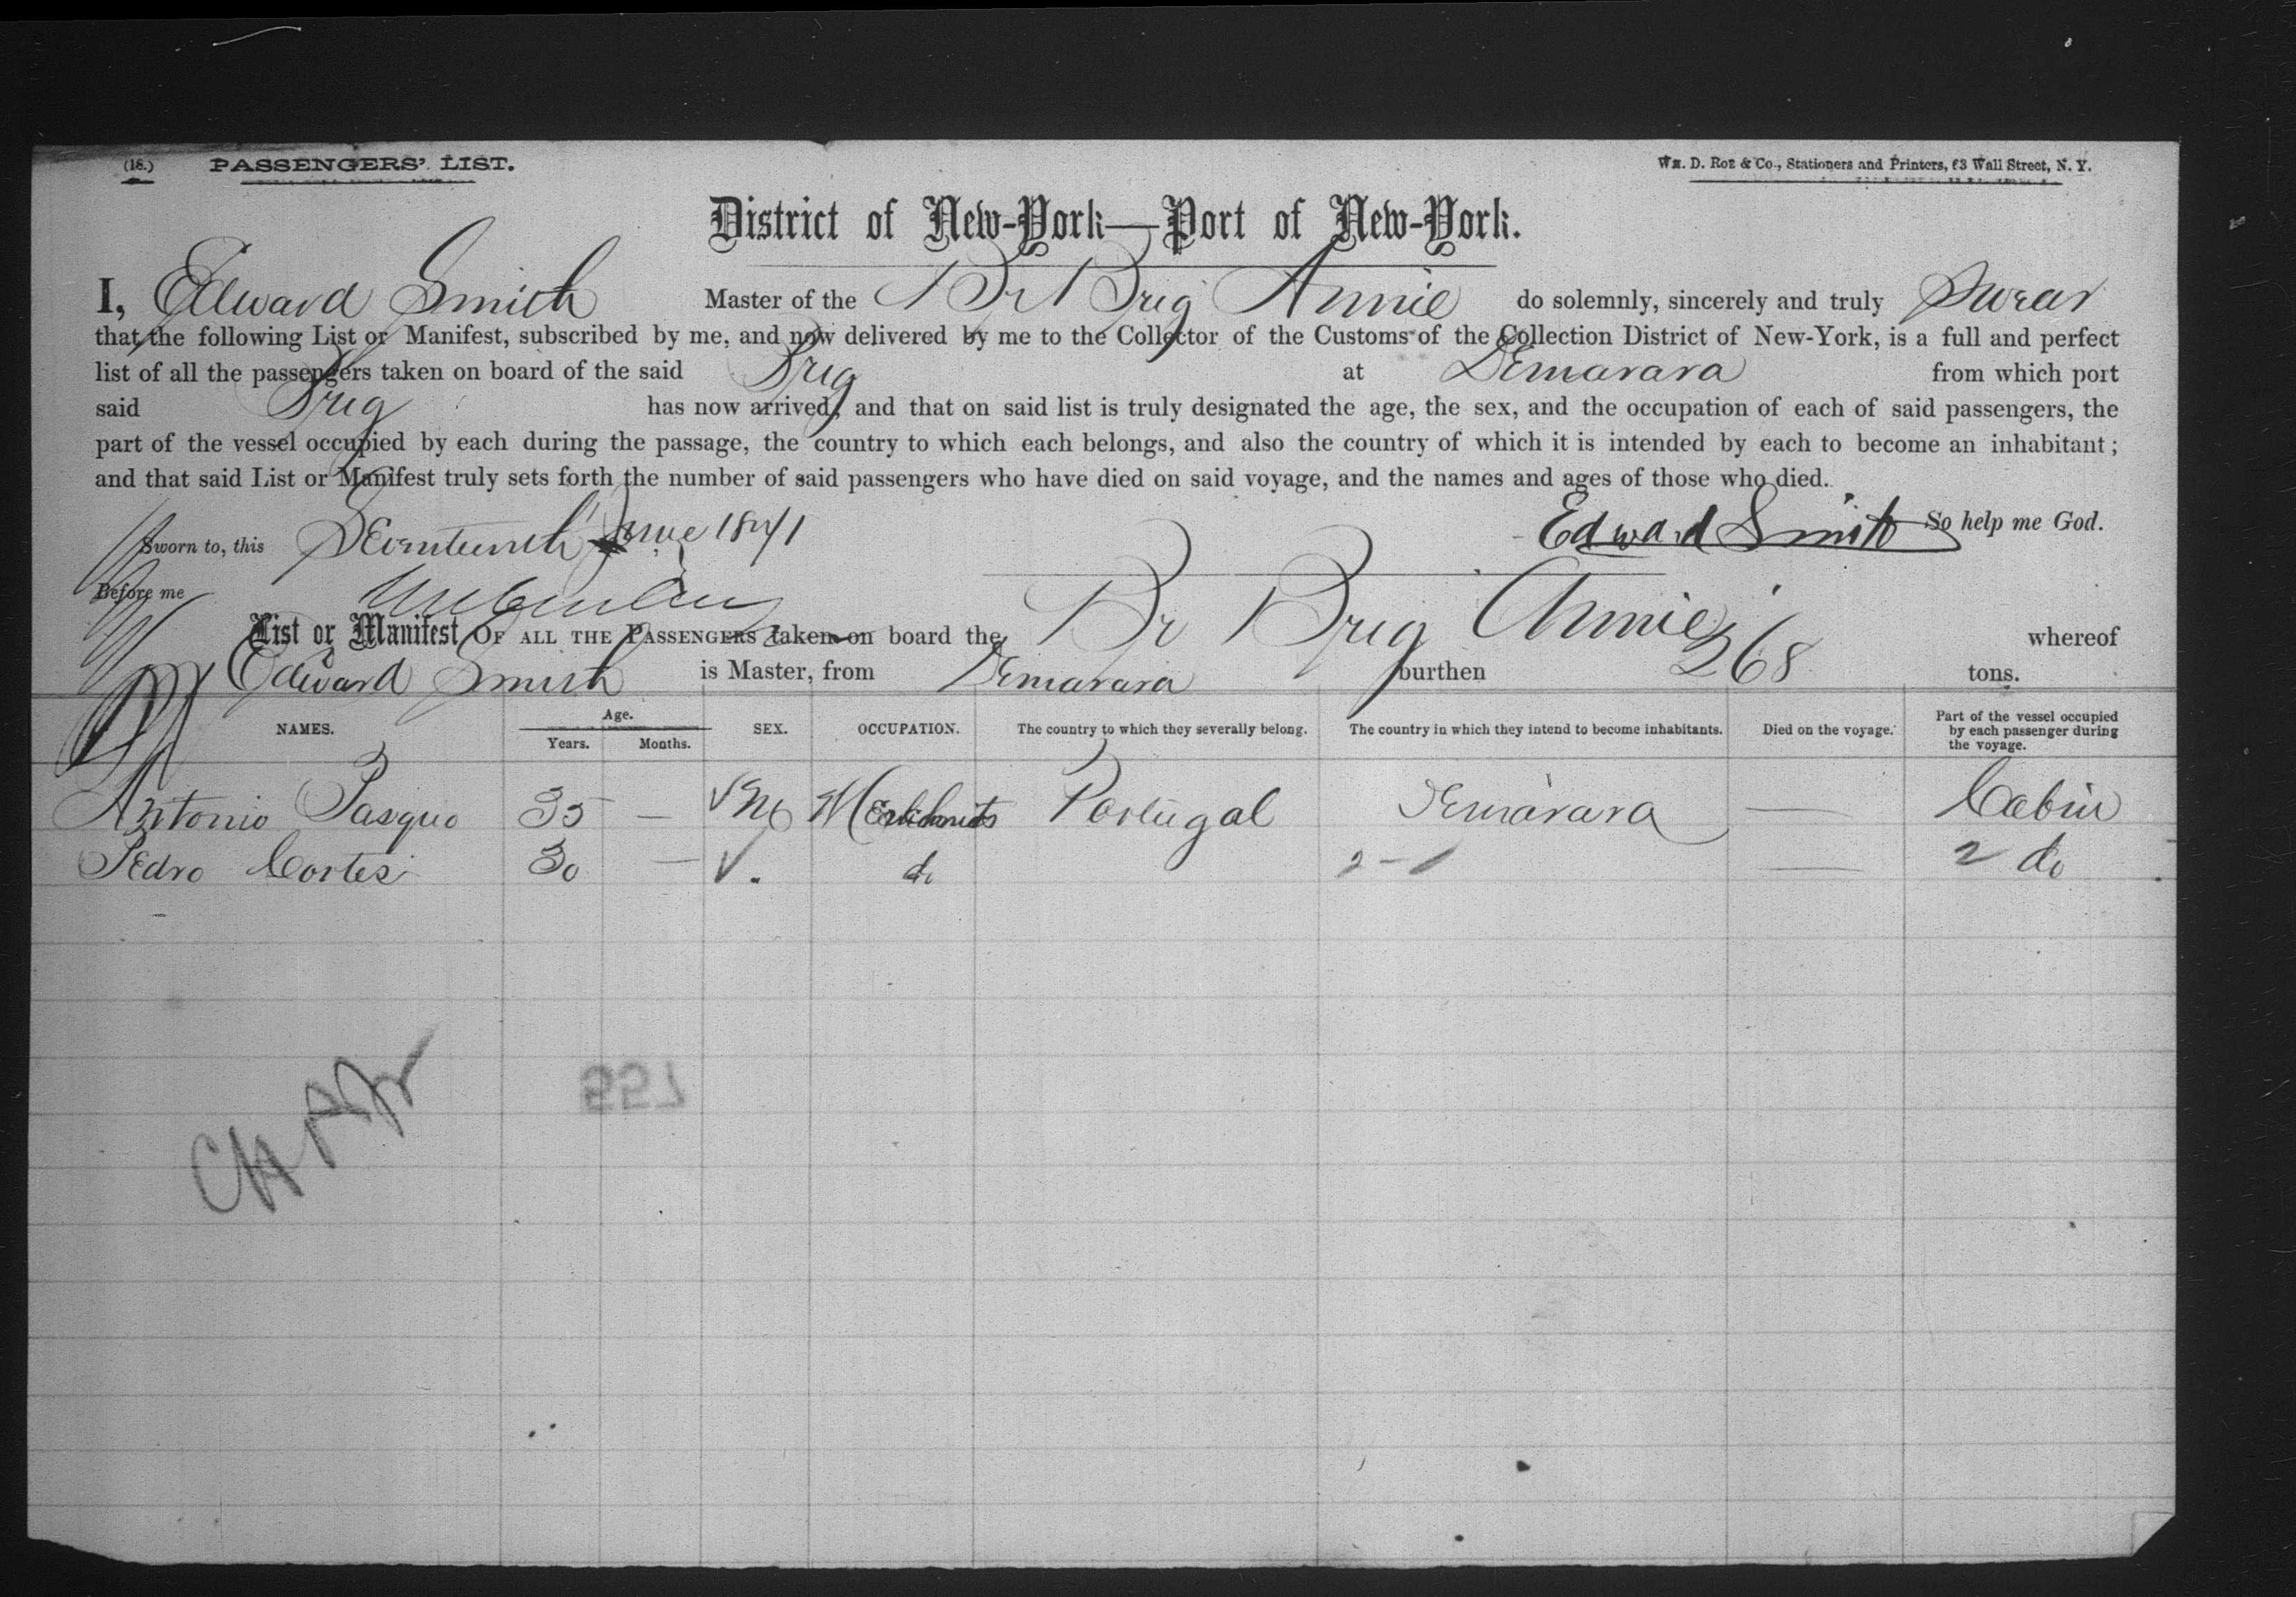 (18.) PASSENGERS' LIST. Wm. D. Roe & Co., Stationers and Printers, 63 Wall Street, N. Y.
District of New-York—Port of New-York.
I, Edward Smith Master of the Br Brig Annie do solemnly, sincerely and truly Swear
that the following List or Manifest, subscribed by me, and now delivered by me to the Collector of the Customs of the Collection District of New-York, is a full and perfect
list of all the passengers taken on board of the said Brig at Demarara from which port
said Brig has now arrived, and that on said list is truly designated the age, the sex, and the occupation of each of said passengers, the
part of the vessel occupied by each during the passage, the country to which each belongs, and also the country of which it is intended by each to become an inhabitant;
and that said List or Manifest truly sets forth the number of said passengers who have died on said voyage, and the names and ages of those who died.
Sworn to, this Seventeenth June 1871 Edward Smith So help me God.
Before me
List or Manifest OF ALL THE PASSENGERS taken on board the Br Brig Annie whereof
Edward Smith is Master, from Demarara burthen 268 tons.
NAMES. Age. Years. Months. SEX. OCCUPATION. The country to which they severally belong. The country in which they intend to become inhabitants. Died on the voyage. Part of the vessel occupied by each passenger during the voyage.
Antonio Pasquo 35 — M Merchants Portugal Demarara — Cabin
Pedro Cortes 30 — do 2 - 1 — 2 do
155